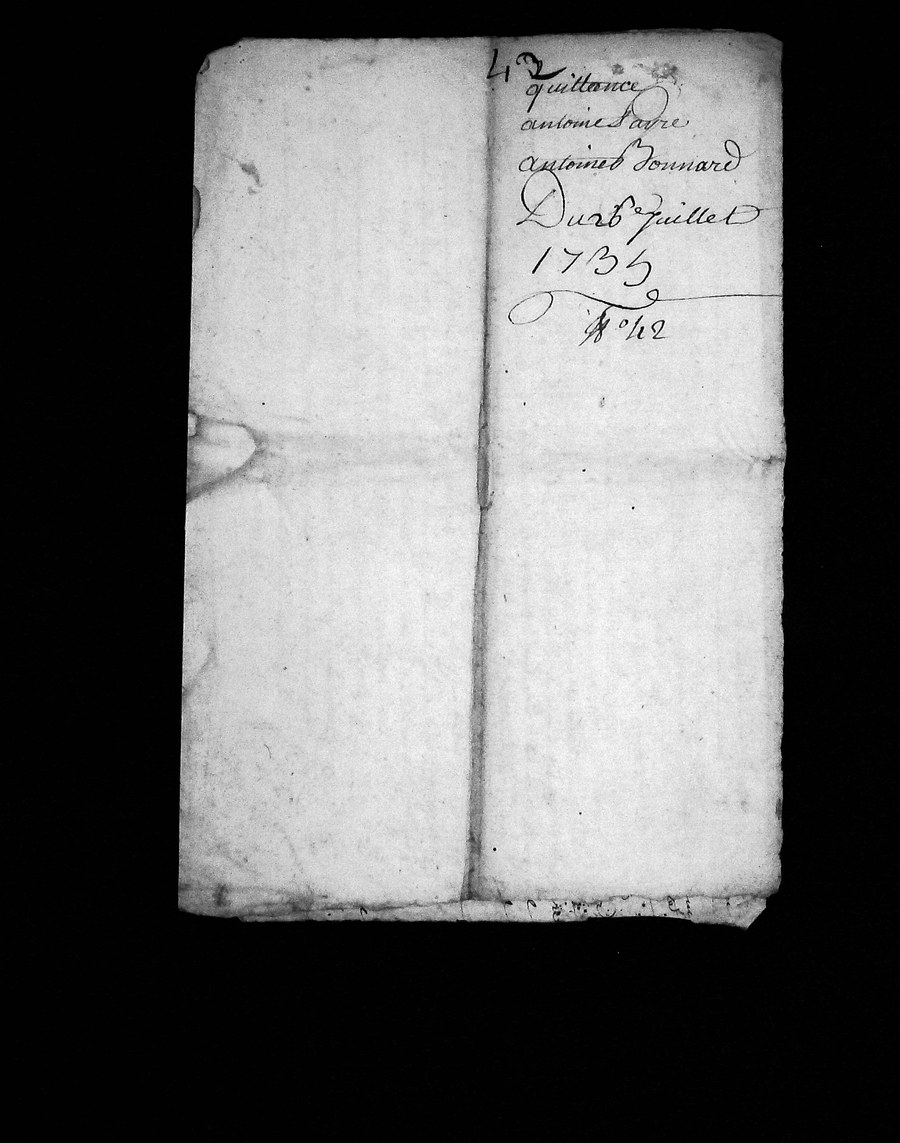 42
quittance
antoine favre
antoine Bonnard
Du 26e juillet
1735
N° 42